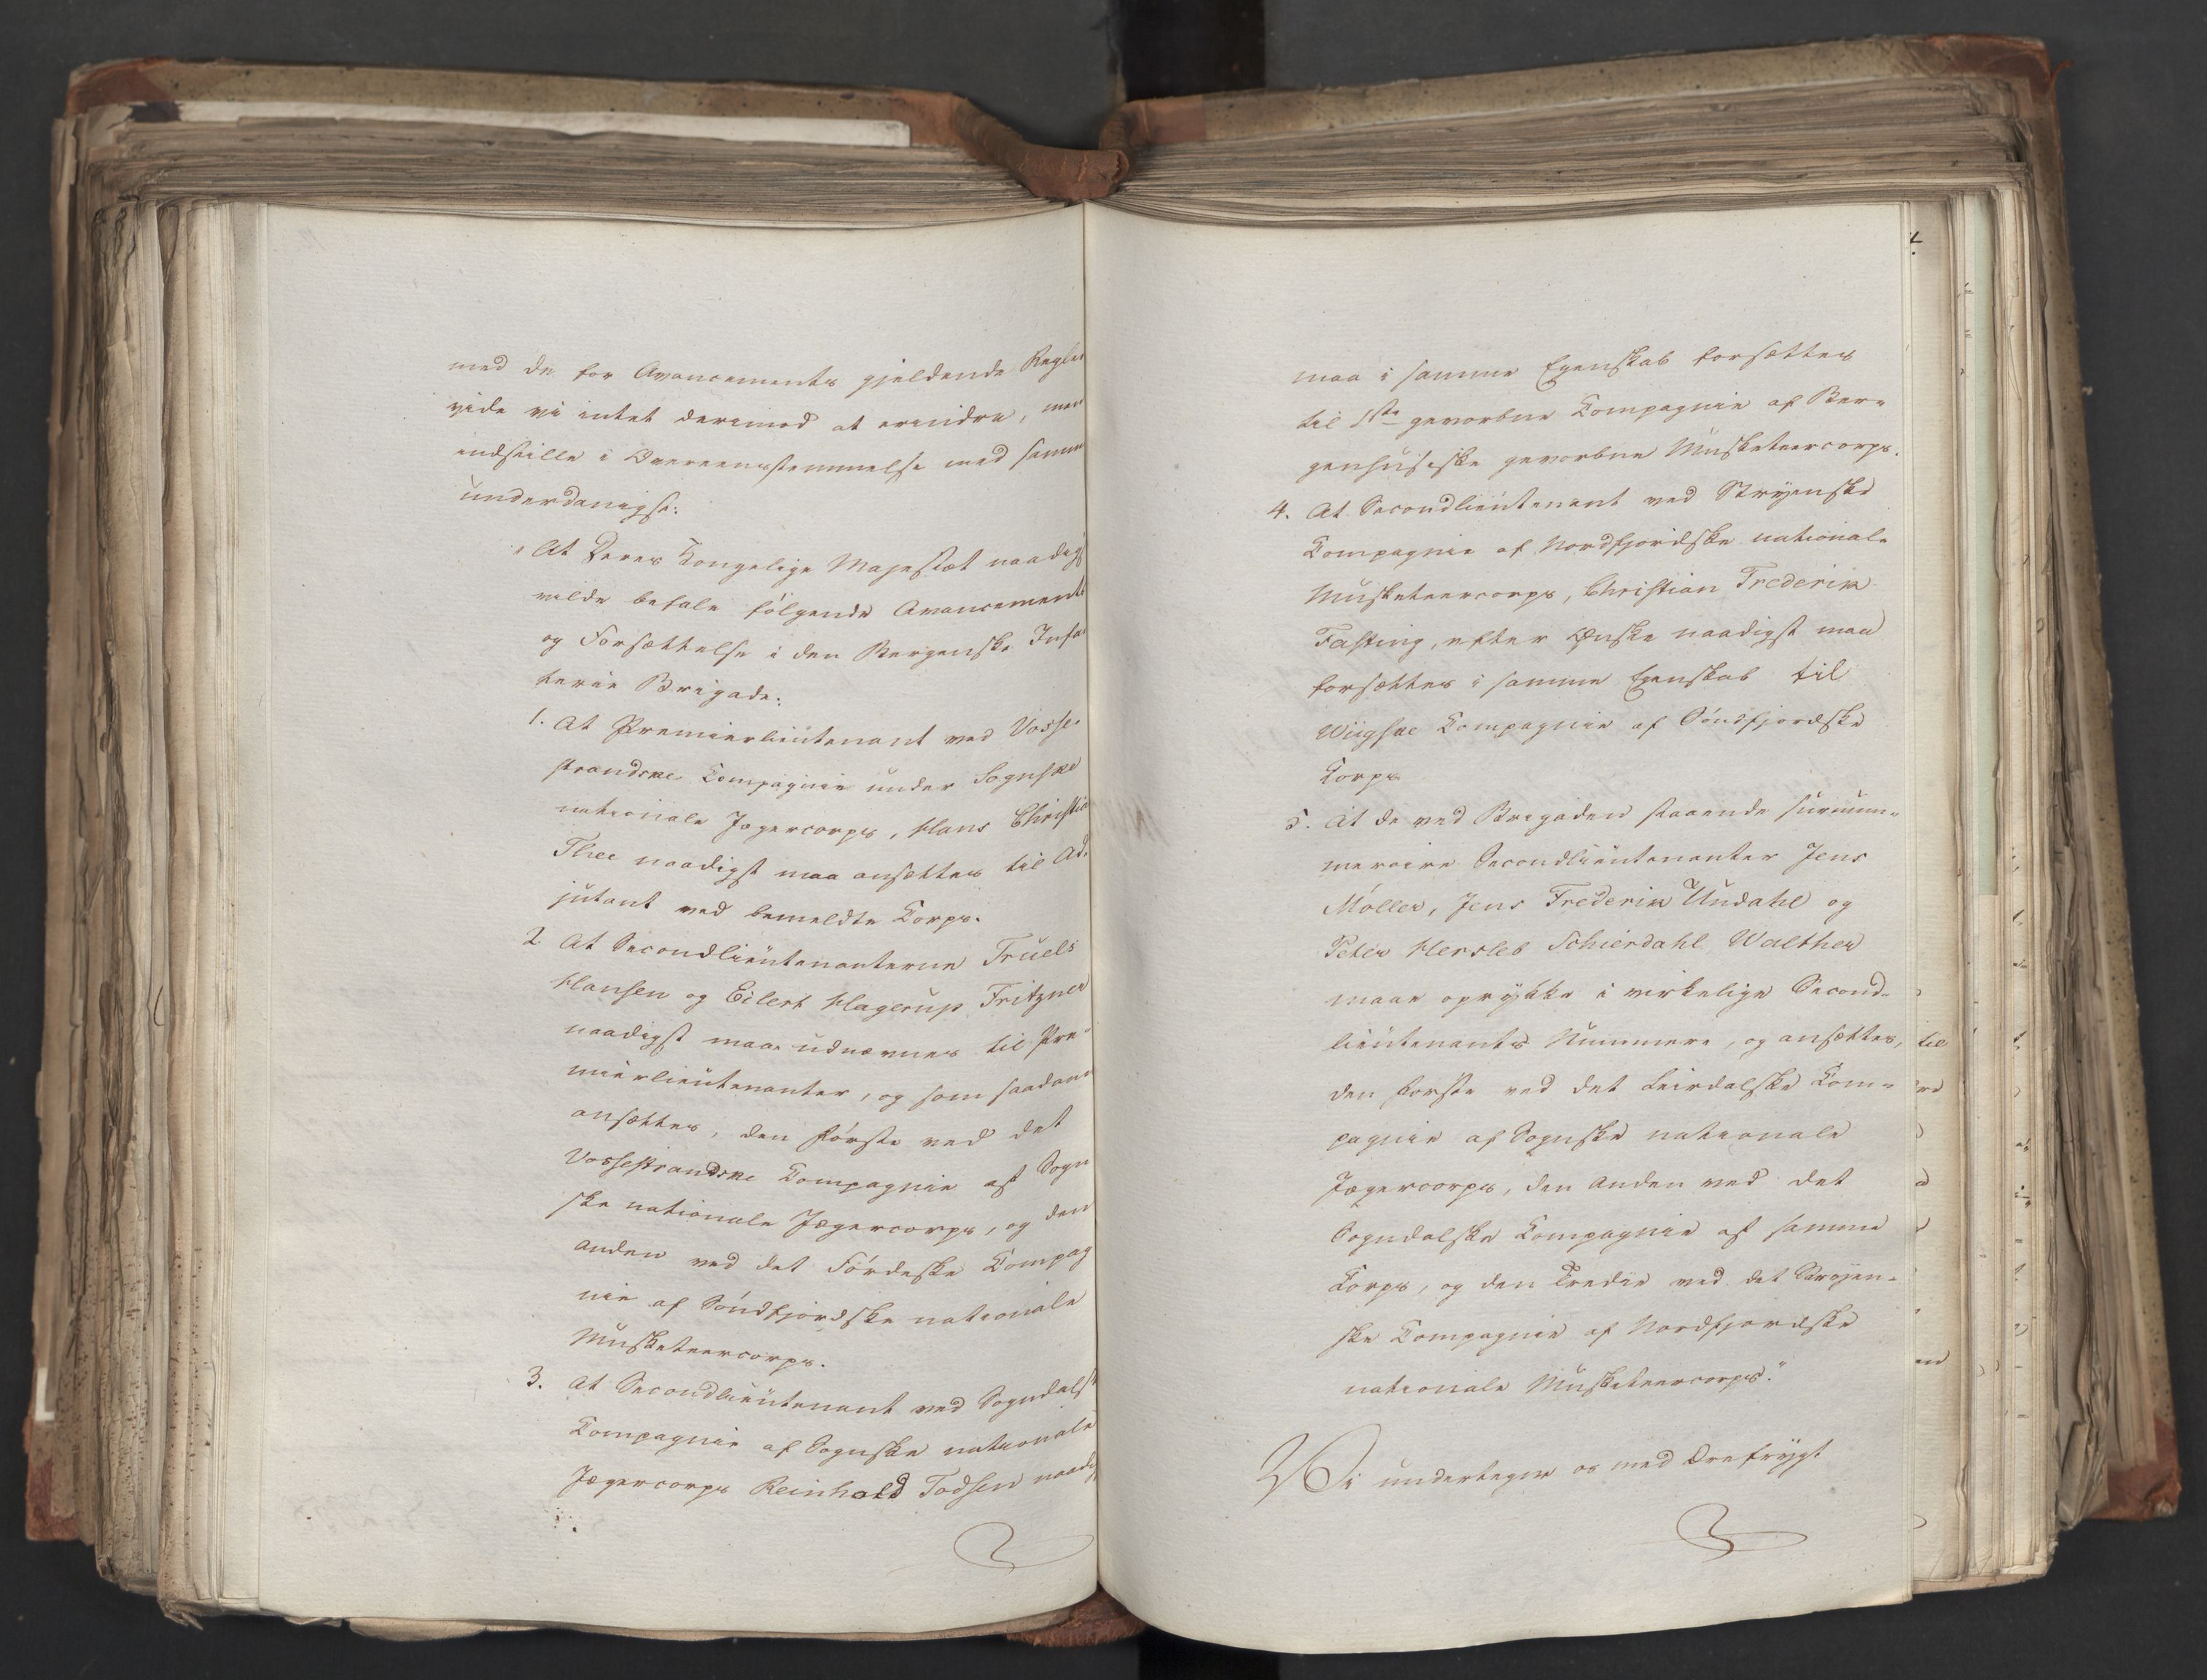 med de for Avancements gjeldende Regler
vide vi intet derimod at erindre, men
indstille i Overeensstemmelse med samme
underdanigst:
"At Deres Kongelige Majestæt naadigst
vilde befale følgende Avancements
og Forsættelse i den Bergenske Infan
terie Brigade:
1. At Premierlieutenant ved Vosse-
strandske Compagnie under Sognske
nationale Jægercorps, Hans Christie
Thee naadigst maa ansættes til Ad-
jutant ved bemeldte Corps.
2 At Secondlieutenanterne Truels
Hansen og Eilert Hagerup Fritzner
naadigst maae udnævnes til Pre-
mierlieutenanter, og som saadane
ansættes, den første ved det
Vossestrandske Compagnie af Sogn
ske nationale Jægercorps, og den
anden ved det Fördeske Compag
nie af Söndfjordske nationale
Musketeercorps.
3. At Secondlieutenant ved Sogndalske
Compagnie af Sognske nationale
Jægercorps Reinhold Todsen naadigst
maa i samme Egenskab forsættes
til 1ste gevorbne Compagnie af Ber-
genhusiske gevorbne Musketeercorps.
4. At Secondlieutenant ved Stryenske
Compagnie af Nordfjordske nationale
Musketeercorps, Christian Frederik
Fasting, efter Ønske naadigst maa
forsættes i samme Egenskab til
Wiigske Compagnie af Söndfjordske
Corps
5. At de ved Brigaden staaende surnum-
meraire Secondlieutenanter Jens
Möller, Jens Frederik Undahl og
Peter Hersleb Schierdahl Walther
maae oprykke i virkelige Second-
lieutenants Nummere, og ansættes,
den første ved det Leirdalske Com-
pagnie af Sognske nationale
Jægercorps, den Anden ved det
Sogndalske Compagnie af samme
Corps, og den Tredie ved det Stryen-
ske Compagnie af Nordfjordske
nationale Musketeercorps."
Vi undertegne os med Ærefrygt